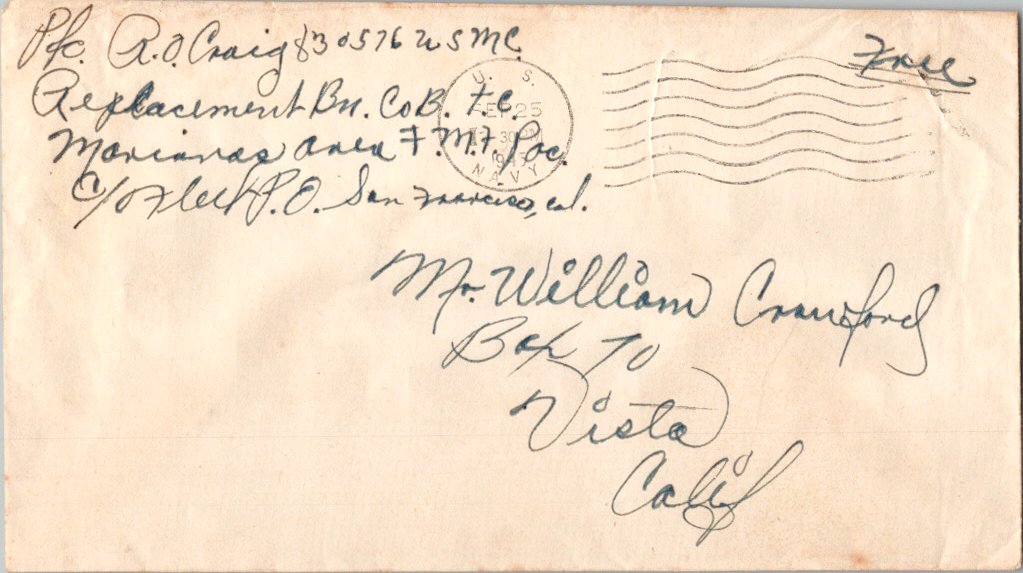 Pfc. R.O. Craig 830576 USMC.
Free
Replacement Bn. Co B. T.C.
Marianas area F.M.F. Pac.
C/o Fleet P.O. San Francisco, Cal.
U. S.
25
NAVY
Mr. William Crawford
Box 70
Vista
Calif